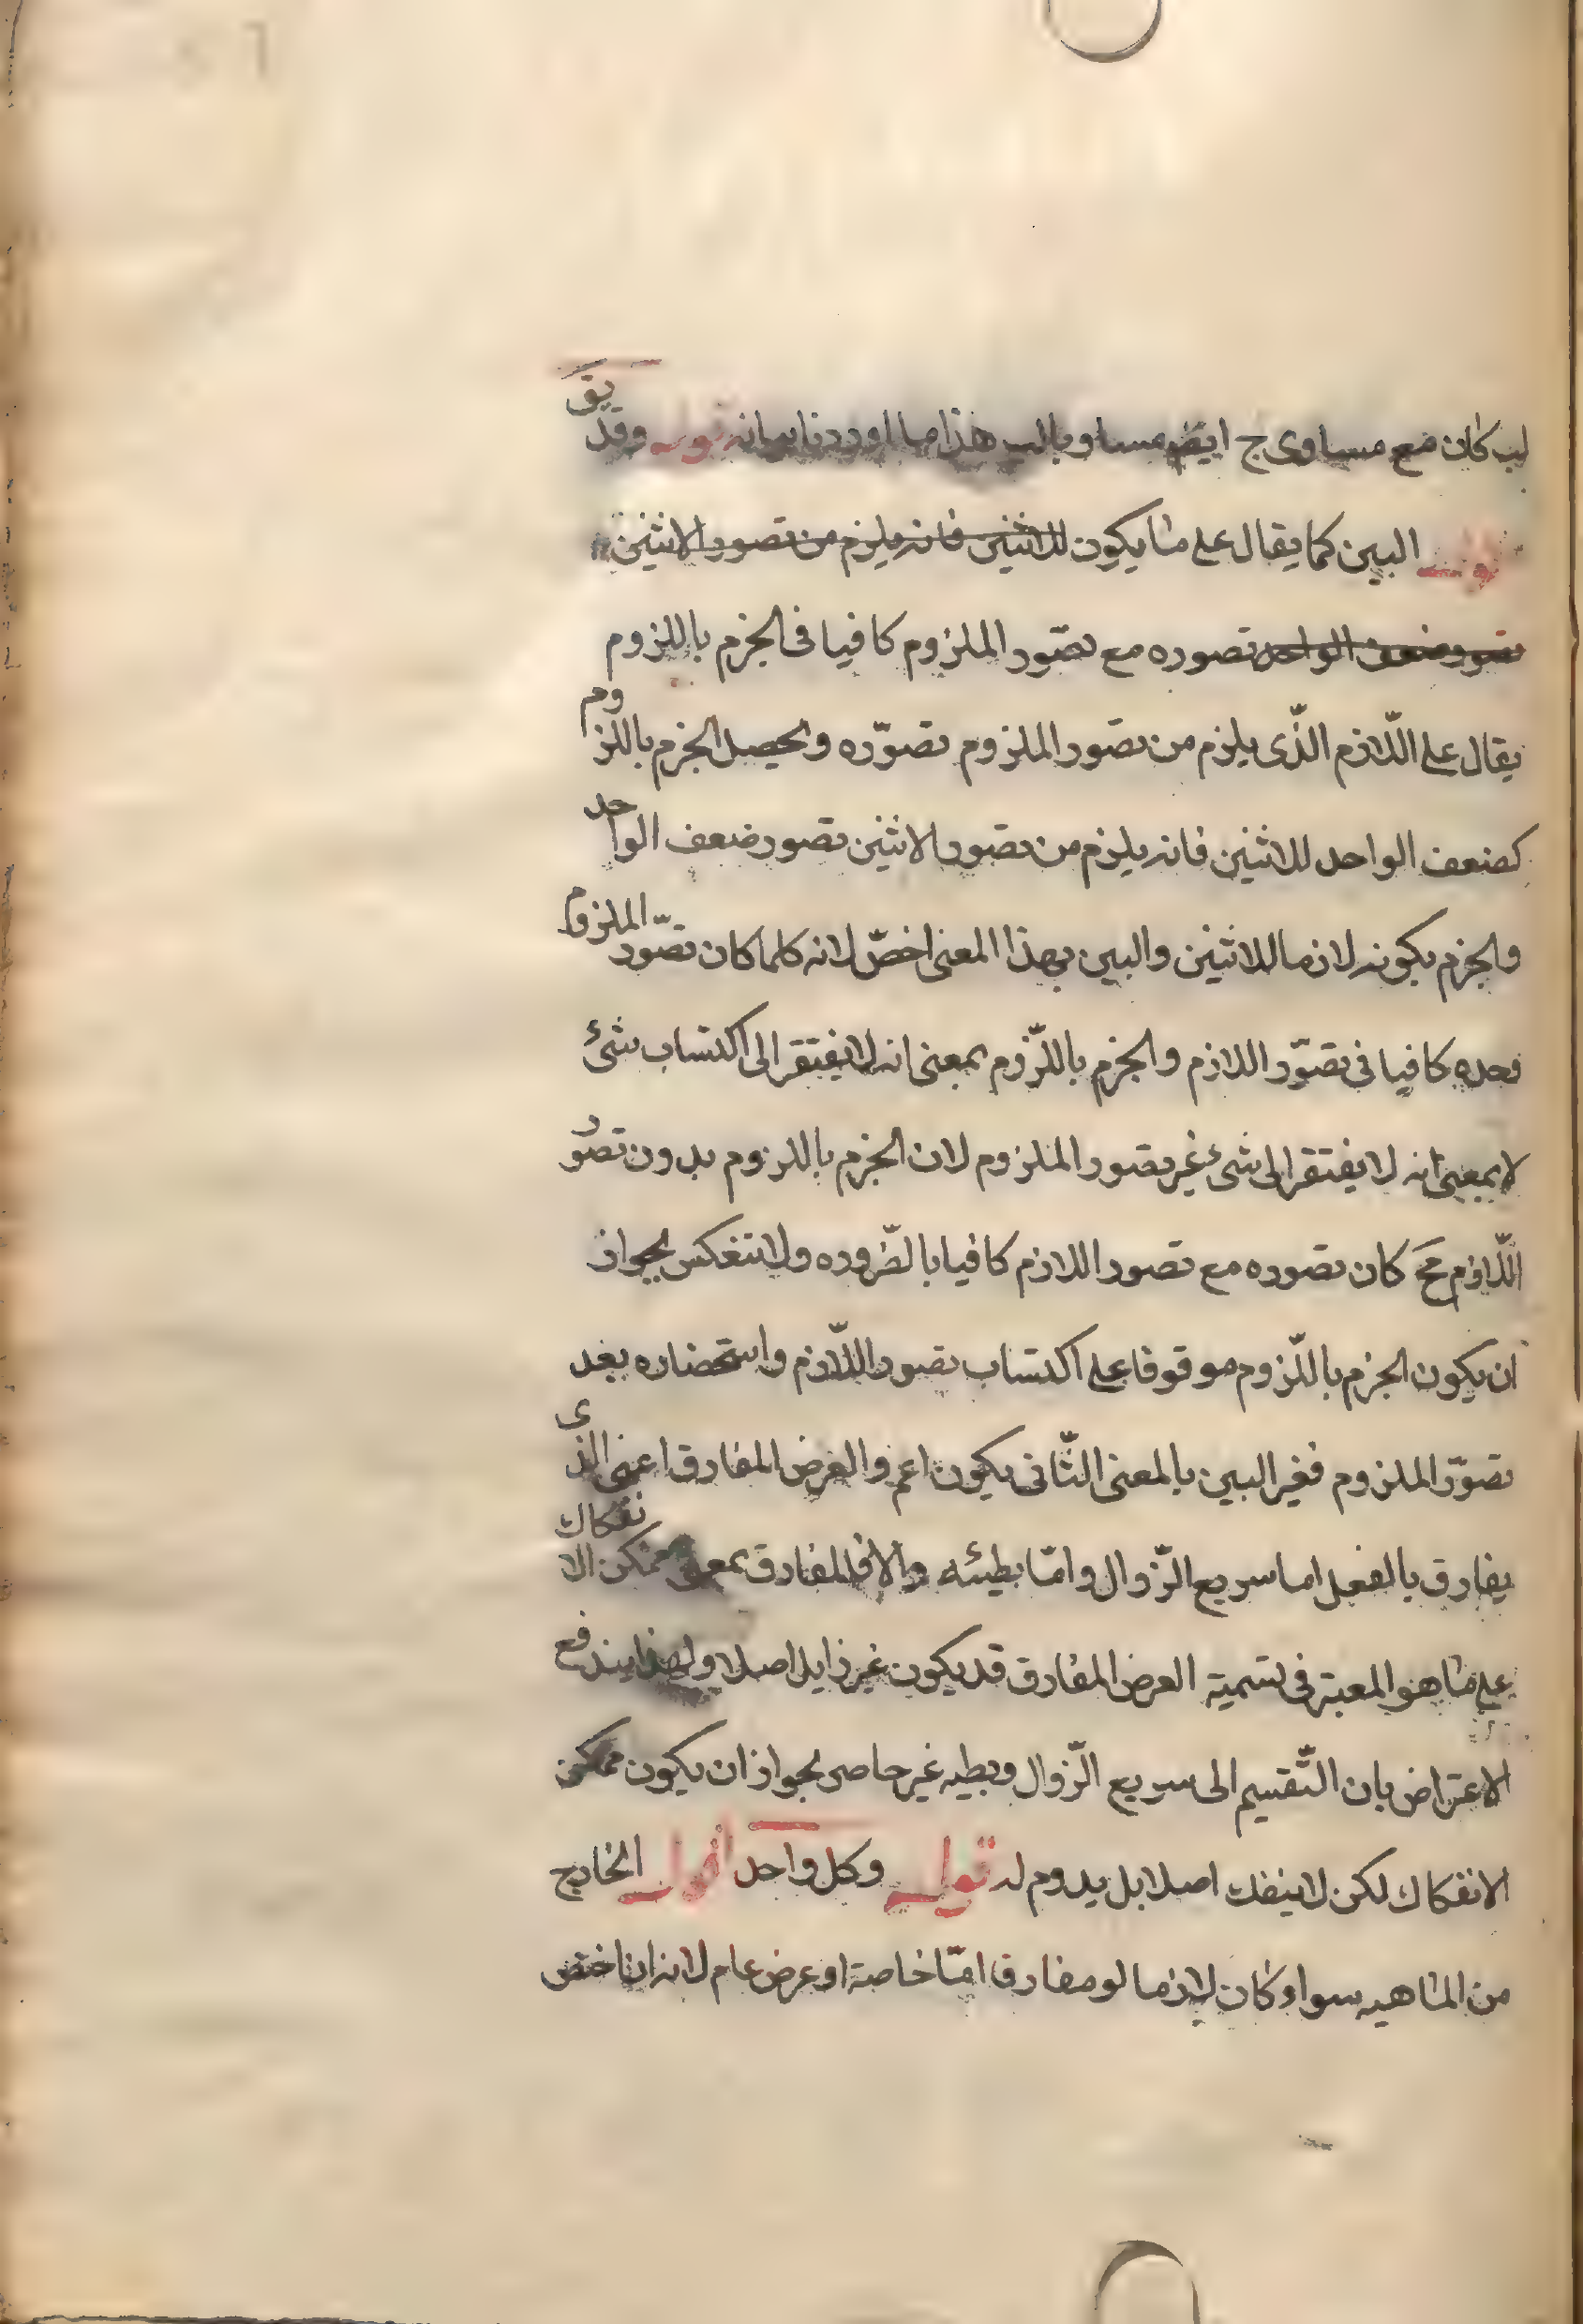 لب كان مع مساوى ج ايضا مساو بالب هذا ما اوردنا بيانه قوله وقد يق
اقول البين كما يقال على ما يكون للاثنين فانه يلزم من تصور الاثنين
تصور ضعف الواحد تصوره مع تصور الملزوم كافيا فى الجزم باللزوم
يقال على اللّازم الذّى يلزم من تصور الملزوم تصوّره ويحصل الجزم باللزوم
كضعف الواحد للاثنين فانه يلزم من تصور الاثنين تصور ضعف الواحد
والجزم بكونه لازما للاثنين والبين بهذا المعنى اخصّ لانه كلما كان تصّور الملزوم
وحده كافيا فى تصوّر اللازم والجزم باللّزوم بمعنى انه لا يفتقر الى اكتساب شئ
لا بمعنى انه لا يفتقر الى شئ غير تصور الملزوم لان الجزم باللزوم بدون تصور
اللّازم مح كان تصوره مع تصور اللازم كافيا بالضّروره ولا تنعكس لجواز
ان يكون الجزم باللّزوم موقوفا على اكتساب تصور اللّازم واستحضاره بعد
تصوّر الملزوم فغير البين بالمعنى الثّانى يكون اعم والعرض المفارق اعنى الذى
يفارق بالفعل اما سريع الزّوال وامّا بطيئه والا فالمفارق بمعنى ممكن الانفكاك
على ما هو المعتبر فى تسمية العرض المفارق قد يكون غير زايل اصلا ولهذا يندفع
الاعتراض بان التّقسيم الى سريع الزّوال وبطيه غير حاصر لجواز ان يكون ممكن
الانفكاك لكن لا ينفك اصلا بل يدوم له قوله وكل واحد اقول الخارج
من الماهيه سواء كان لازما او مفارقا امّا خاصة او عرض عام لانه ان اختص